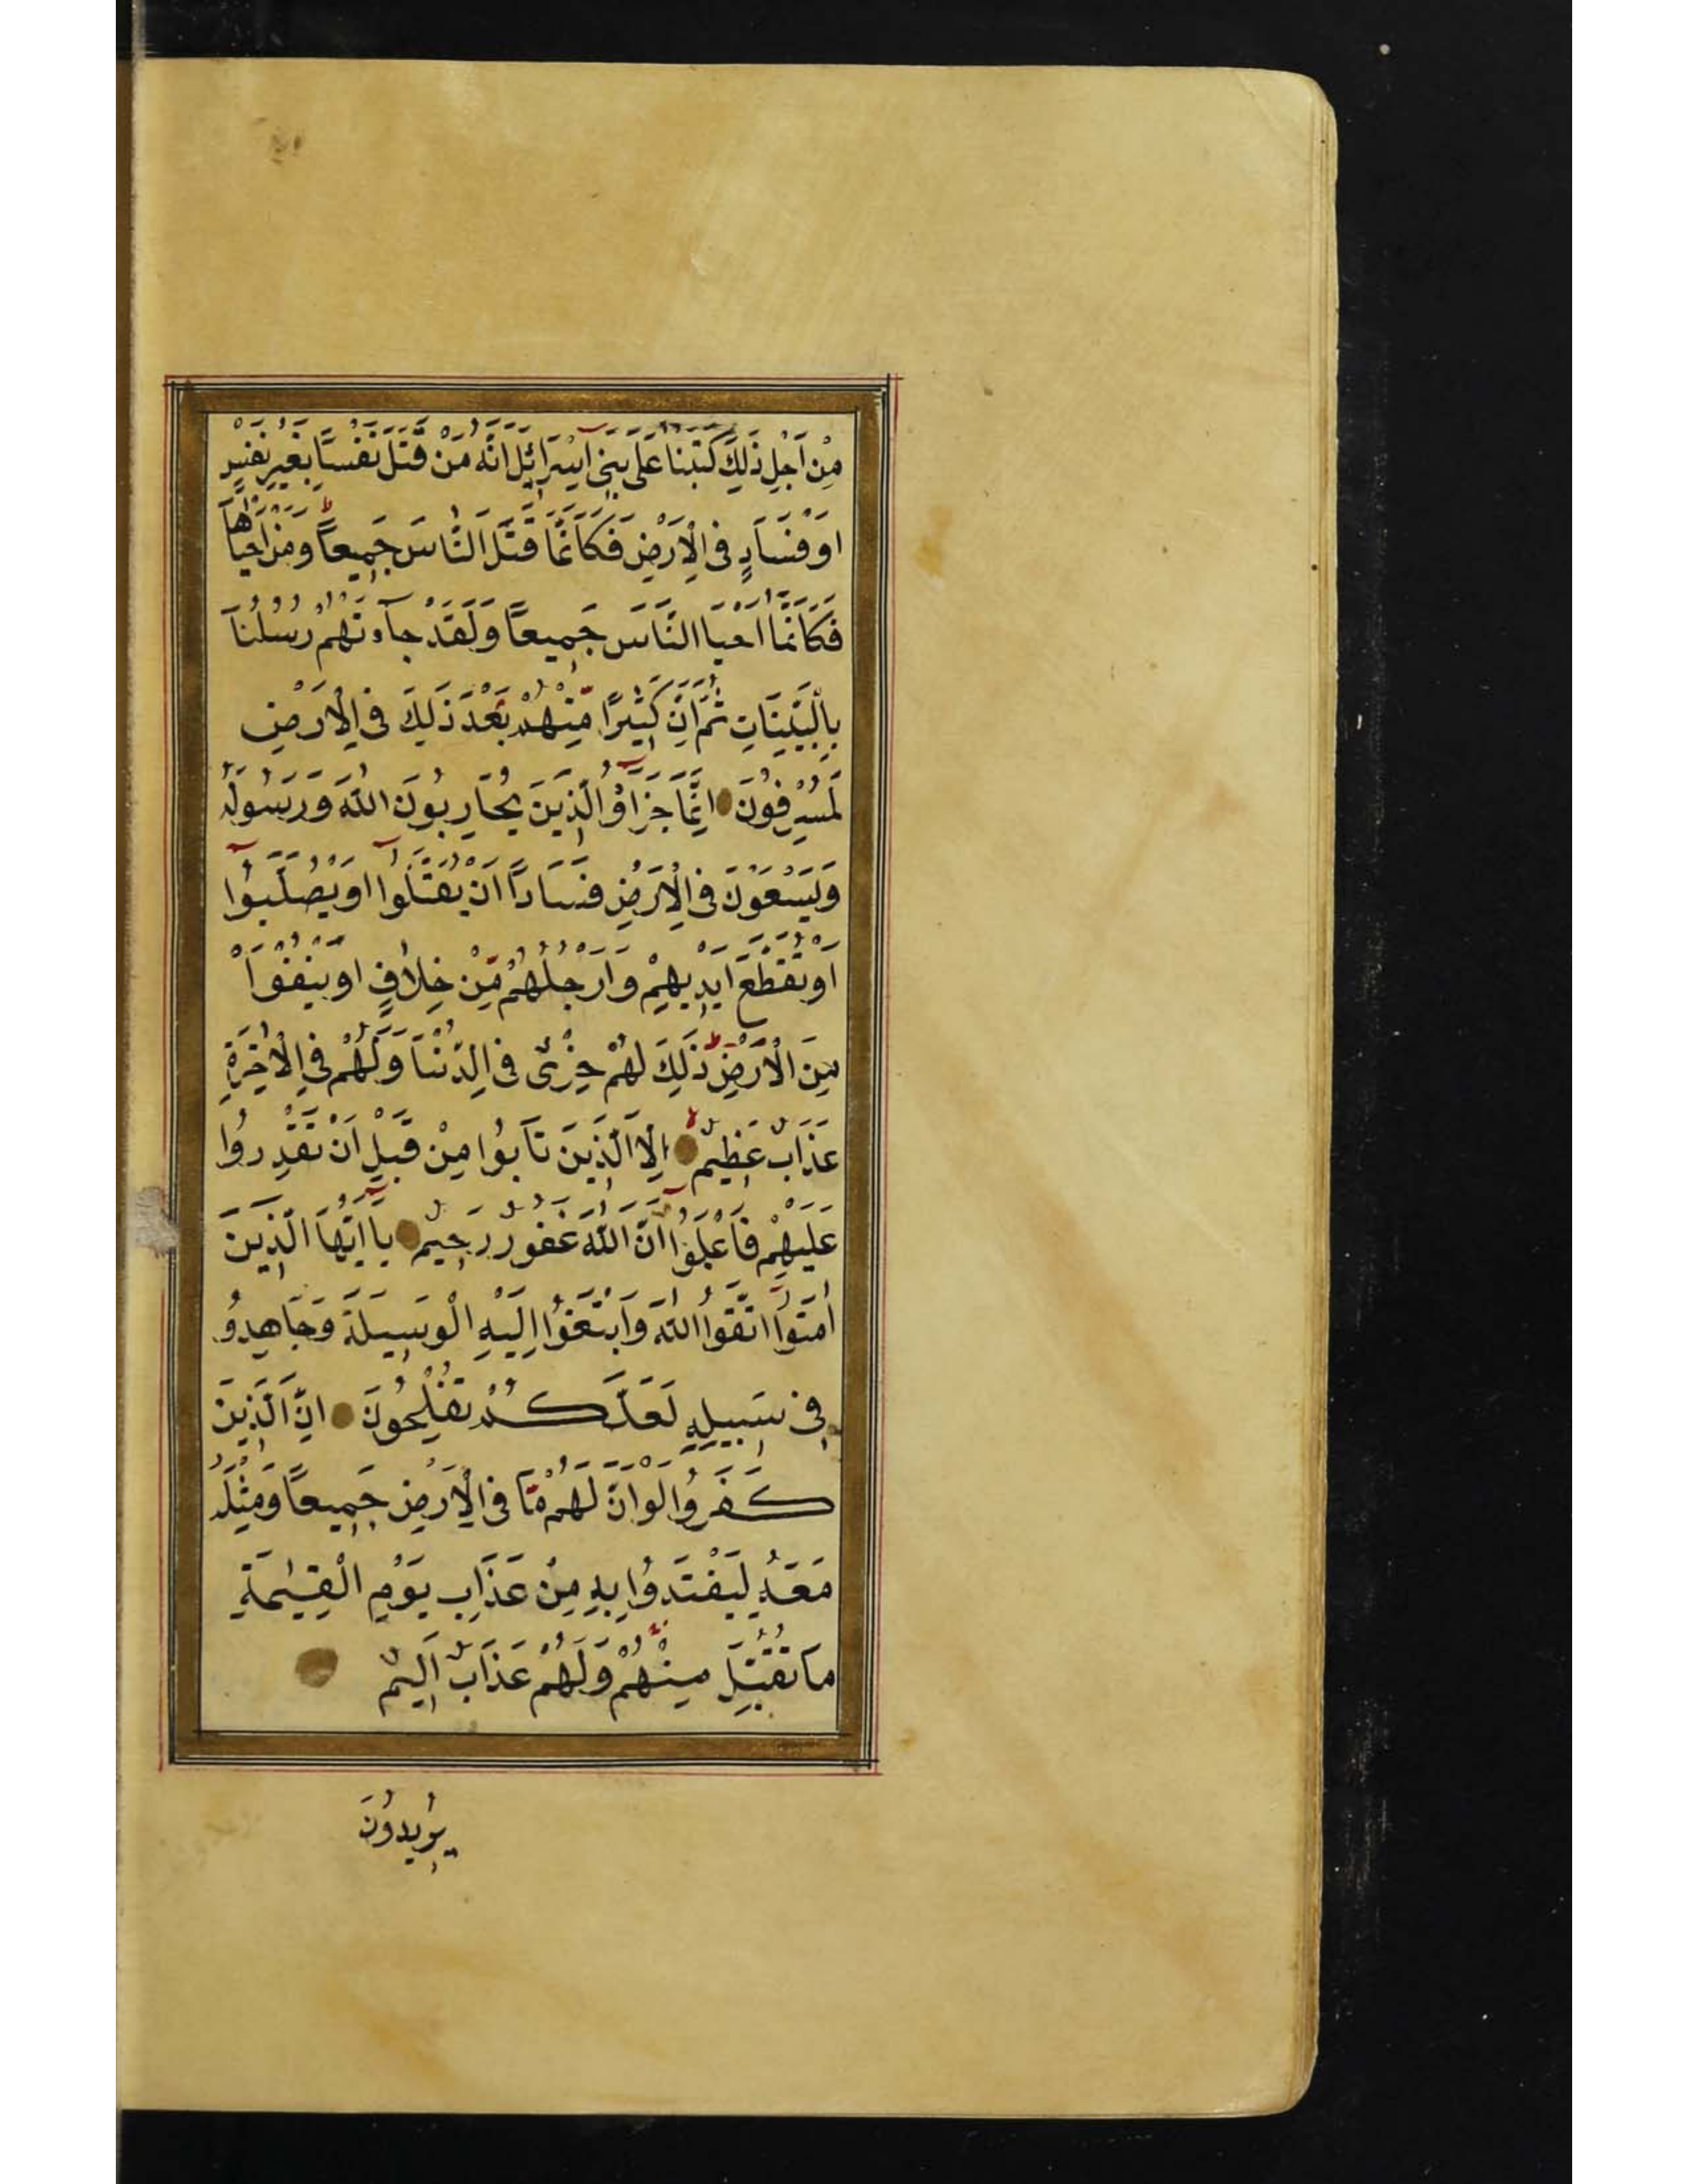 مِنْ اَجْلِ ذَلِكَ كَتَبْنَا عَلَى بَنِى اِسْرَائِلَ اَنَّهُ مَنْ قَتَلَ نَفْسًا بِغَيْرِ نَفْسٍ
اَوْ فَسَادٍ فِى الْاَرْضِ فَكَاَنَّمَا قَتَلَ النَّاسَ جَمِيعاً وَمَنْ اَحْيَاهَا
فَكَاَنَّمَا اَحْيَا النَّاسَ جَمِيعاً وَلَقَدْ جَآءَتْهُمْ رُسُلُنَا
بِالْبَيِّنَاتِ ثُمَّ اِنَّ كَثِيرًا مِّنْهُمْ بَعْدَ ذَلِكَ فِى الْاَرْضِ
لَمُسْرِفُونَ اِنَّمَا جَزَاؤُ الَّذِينَ يُحَارِبُونَ اللّٰهَ وَرَسُولَهُ
وَيَسْعَوْنَ فِى الْاَرْضِ فَسَاداً اَنْ يُقَتَّلُوا اَوْ يُصَلَّبُوا
اَوْ تُقَطَّعَ اَيْدِيهِمْ وَاَرْجُلُهُمْ مِّنْ خِلَافٍ اَوْ يُنْفَوْا
مِنَ الْاَرْضِ ذَلِكَ لَهُمْ خِزْىٌ فِى الدُّنْيَا وَلَهُمْ فِى الْاٰخِرَةِ
عَذَابٌ عَظِيمٌ اِلَّا الَّذِينَ تَابُوا مِنْ قَبْلِ اَنْ تَقْدِرُوا
عَلَيْهِمْ فَاعْلَمُوا اَنَّ اللّٰهَ غَفُورٌ رَحِيمٌ يَا اَيُّهَا الَّذِينَ
اٰمَنُوا اتَّقُوا اللّٰهَ وَابْتَغُوا اِلَيْهِ الْوَسِيلَةَ وَجَاهِدُو
فِى سَبِيلِهِ لَعَلَّكُمْ تُفْلِحُونَ اِنَّ الَّذِينَ
كَفَرُوا لَوْ اَنَّ لَهُمْ مَّا فِى الْاَرْضِ جَمِيعاً وَمِثْلَهُ
مَعَهُ لِيَفْتَدُوا بِهِ مِنْ عَذَابِ يَوْمِ الْقِيٰمَةِ
مَا تُقُبِّلَ مِنْهُمْ وَلَهُمْ عَذَابٌ اَلِيمٌ
يُرِيدُونَ